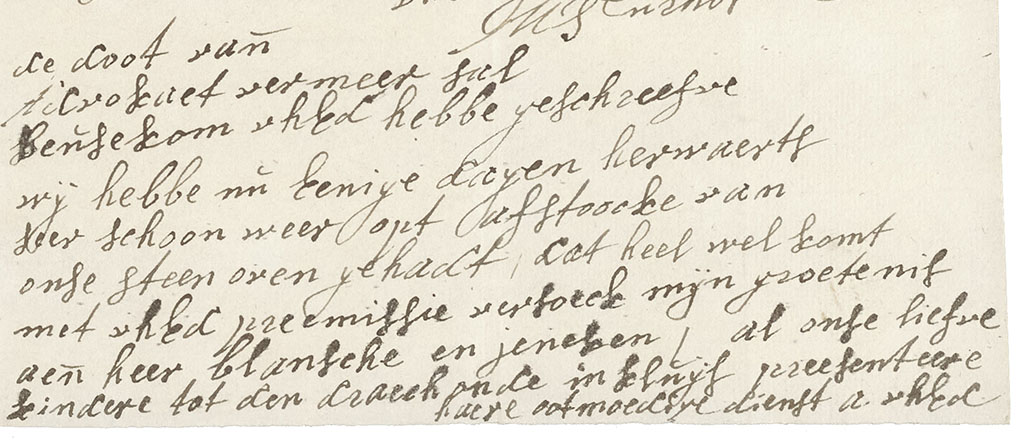 de doot van
advokaet vermeer sal
beusekom uhEd hebbe geschreefve
wij hebbe nu eenige dagen herwaerts
seer schoon weer opt afstoocke van
onse steen oven gehadt, dat heel wel komt
met uhEd preemissie versoeck mijn groetenis
aen heer blansche en jeneken / al onse liefve
kindere tot den draeck onde in kluijs preesenteere
haere ootmoedige dienst a uhEd